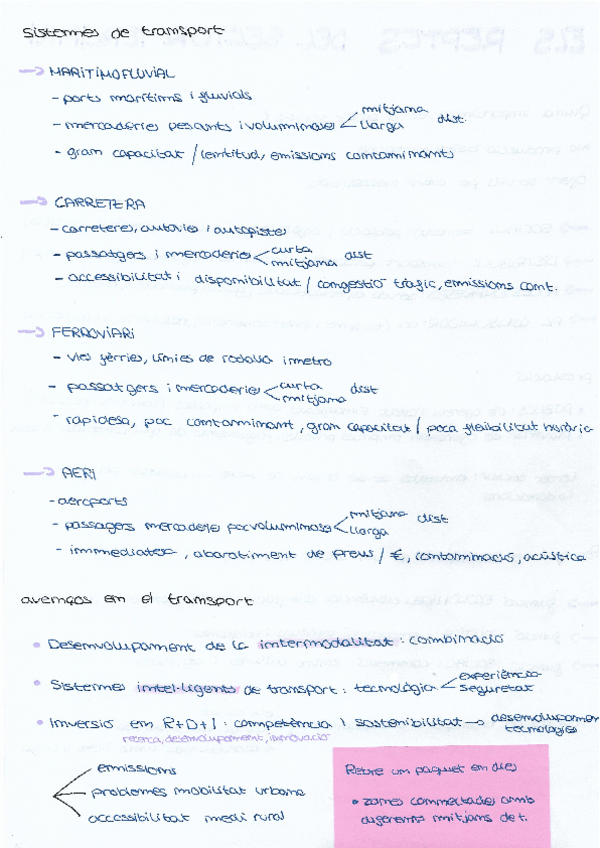 sistemes de transport
→ MARÍTIMOFLUVIAL
- ports marítims i fluvials
- mercaderies pesants i voluminoses < mitjana llarga dist.
- gran capacitat / lentitud, emissions contaminants
→ CARRETERA
- carreteres, autovies i autopistes
- passatgers i mercaderies < curta mitjana dist
- accessibilitat i disponibilitat / congestió tràfic, emissions cont.
→ FERROVIARI
- vies fèrries, línies de rodalia i metro
- passatgers i mercaderies < curta mitjana dist
- rapidesa, poc contaminant, gran capacitat / poca flexibilitat horària
→ AERI
- aeroports
- passagers mercaderies poc voluminoses < mitjana llarga dist
- immediatesa, abaratiment de preus / €, contaminació, acústica
avenços en el transport
• Desenvolupament de la intermodalitat: combinació
• Sistemes intel·ligents de transport: tecnològia < experiència seguretat
• Inversió en R+D+I: competència i sostenibilitat → desenvolupamen tecnologies
recerca, desenvolupament, innovació
emissions
problemes mobilitat urbana
accessibilitat medi rural
Rebre un paquet en dies
• zones connectades amb
diferents mitjans de t.